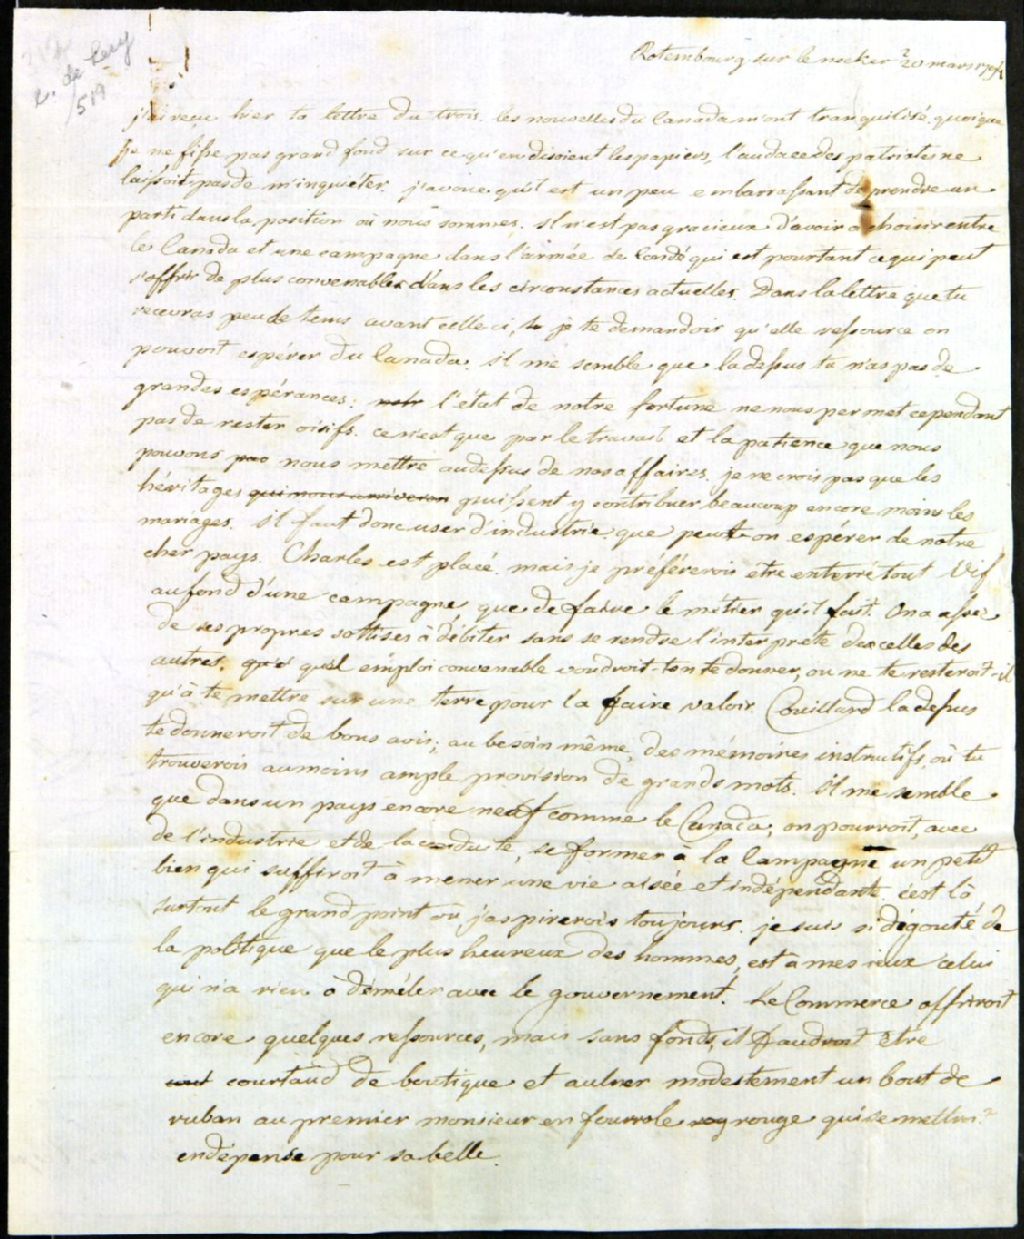 L. de Lery
519
Rotembourg sur le necker 20 mars
j'ai reçu hier ta lettre du trois. les nouvelles du Canada m'ont tranquilisé. quoique
je ne fisse pas grand fond sur ce qu'en disoient les papiers, l'audace des patriotes ne
laissoit pas de m'inquiéter. j'avoue qu'il est un peu embarrassant de prendre un
parti dans la position où nous sommes. il n'est pas gracieux d'avoir à choisir entre
le Canada et une campagne dans l'armée de Condé qui est pourtant ce qui peut
s'offrir de plus convenable dans les circonstances actuelles. Dans la lettre que tu
recevras peu de tems avant celle ci, je te demandois qu'elle ressource on
pouvoit espérer du Canada. il me semble que la dessus tu n'as pas de
grandes espérances: l'état de notre fortune ne nous permet cependant
pas de rester oisifs. ce n'est que par le travail et la patience que nous
pouvons pas nous mettre au dessus de nos affaires. je ne crois pas que les
héritages qui nous arriveron puissent y contribuer beaucoup encore moins les
mariages. il faut donc user d'industrie que peut on espérer de notre
cher pays. Charles est placé mais je préférerois etre enterré tout vif
au fond d'une campagne que de faire le métier qu'il fait. On a assez
de ses propres sottises à débiter sans se rendre l'interprete de celles des
autres. quel emploi convenable voudroit-t-on te donner, ou ne te resteroit-il
qu'à te mettre sur une terre pour la faire valoir. Couillard la dessus
te donneroit de bons avis; au besoin même, des mémoires instructifs, où tu
trouverois au moins ample provision de grands mots. il me semble
que dans un pays encore neuf comme le Canada, on pourroit, avec
de l'industrie et de la conduite, se former à la Campagne un petit
bien qui suffiroit à mener une vie aisée et indépendante, c'est là
surtout le grand point où j'aspirerois toujours. je suis si dégouté de
la politique que le plus heureux des hommes, est à mes ieux celui
qui n'a rien à démêler avec le gouvernement. Le Commerce offriroit
encore quelques ressources, mais sans fonds, il faudroit etre
courtaud de boutique et aulner modestement un bout de
ruban au premier monsieur en rouge qui se mettroit
en depense pour sa belle.